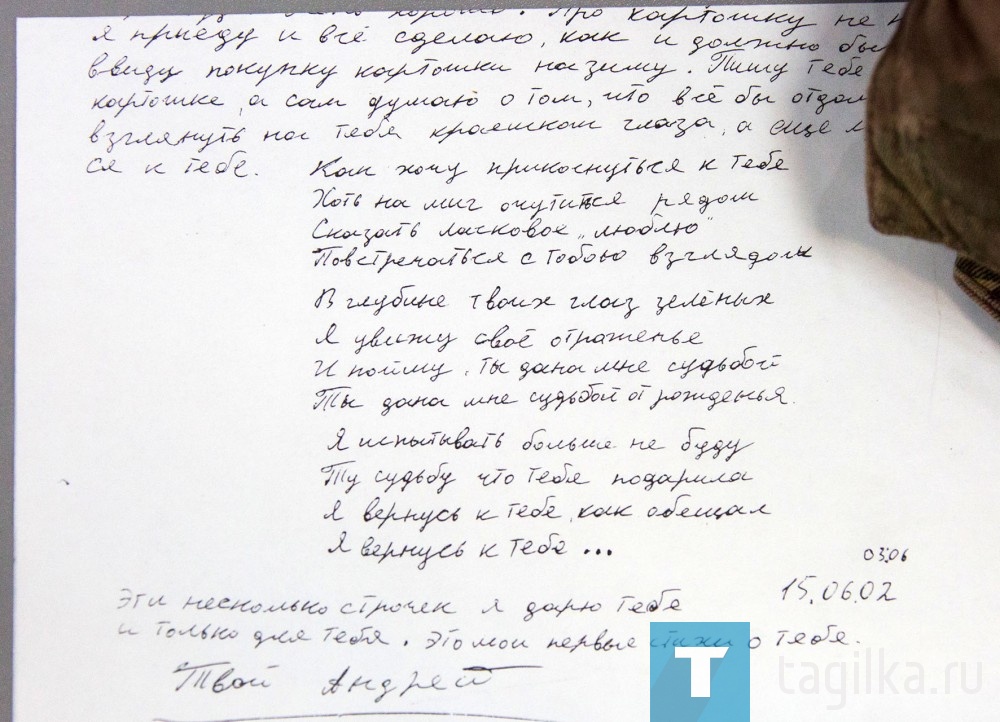 хорошо. Про картошку не
я приеду и всё сделаю, как и должно бы
ввиду покупку картошки на зиму. Пишу тебе
картошке, а сам думаю о том, что всё бы отдал
взглянуть на тебя краешком глаза, а ещё
ся к тебе.
Как хочу прикоснуться к тебе
Хоть на миг очутиться рядом
Сказать ласковое „люблю"
Повстречаться с тобою взглядом
В глубине твоих глаз зелёных
Я увижу своё отраженье
И пойму, ты дана мне судьбой
Ты дана мне судьбой от рожденья.
Я испытывать больше не буду
Ту судьбу что тебя подарила
Я вернусь к тебе, как обещал
Я вернусь к тебе ...
03:06
15.06.02
Эти несколько строчек я дарю тебе
и только для тебя. Это мои первые стихи о тебе.
Твой Андрей
T tagilka.ru